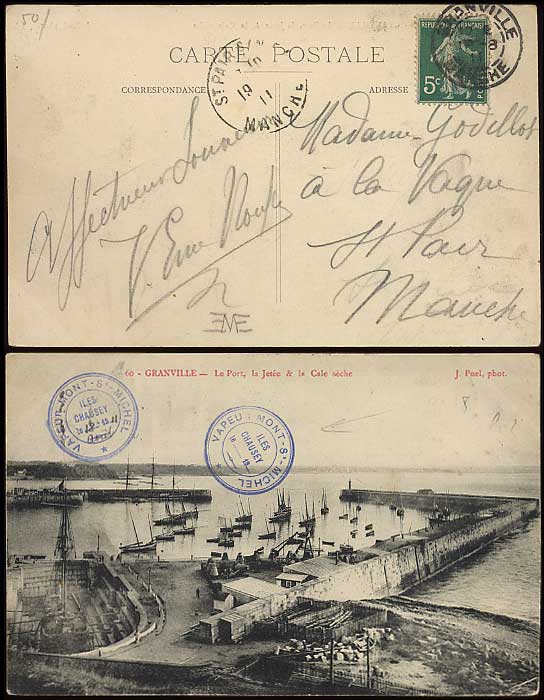 50/
CARTE POSTALE
CORRESPONDANCE
ADRESSE
REPUBLIQUE FRANÇAISE
5c
GRANVILLE
MANCHE
ST PAIR
19
11
MANCHE
Affectueux Souvenir
V. Eme
Madame Godillot
à la Vague
St Pair
Manche
60 - GRANVILLE — Le Port, la Jetée & la Cale sèche
J. Puel, phot.
VAPEUR MONT-ST-MICHEL
ILES
CHAUSEY
VAPEUR MONT-ST-MICHEL
ILES
CHAUSEY
le 19